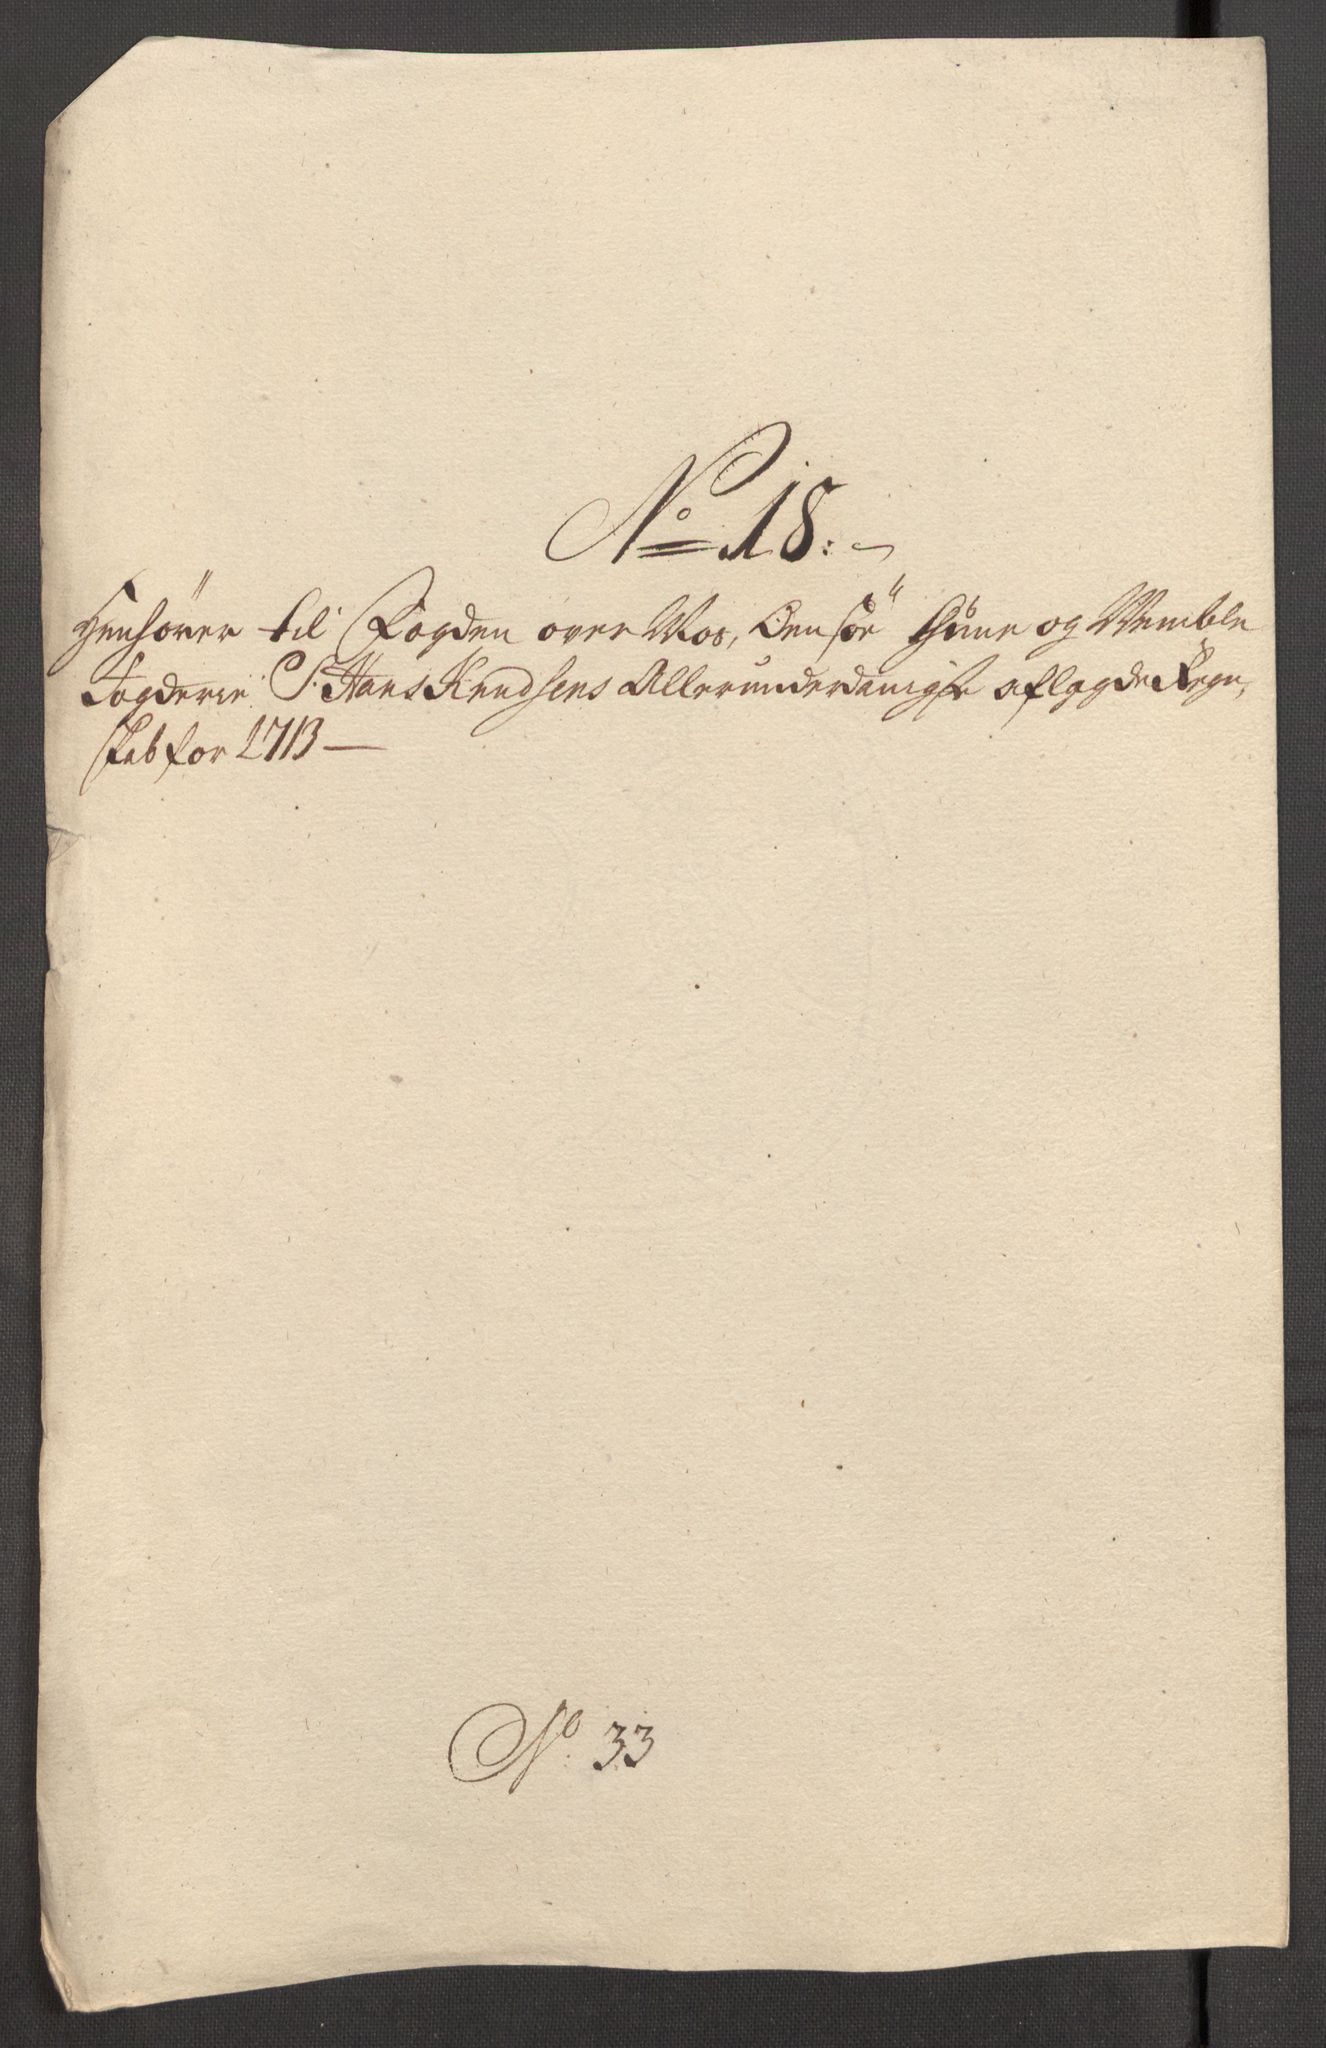 No 18:
Henhører til Fogden over Mos, Onsøe Thune og Wemble
Fogderie Sr. Hans Knudsens Allerunderdanigst aflagde Regn,
skab for 1713
No 33